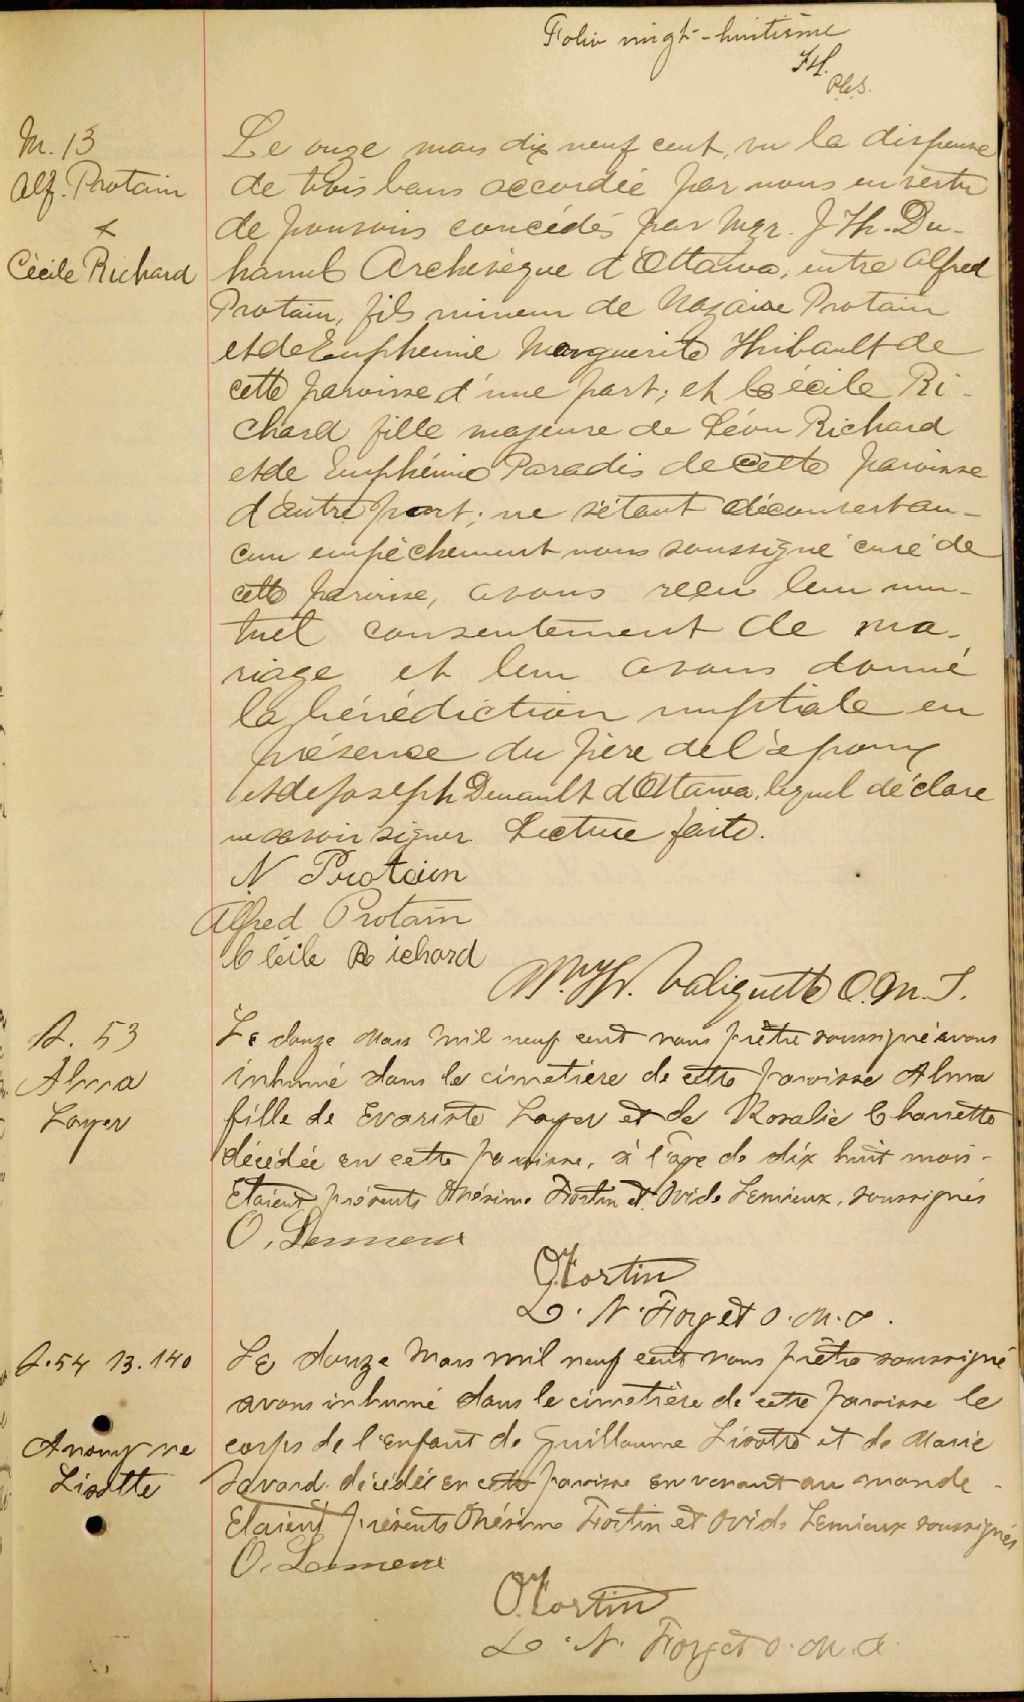 Folio vingt-huitième
M. 13
Alf. Protain
x
Cécile Richard
Le onze mars dix neuf cent, vu la dispense
de trois bans accordée par nous en vertu
de pouvoirs concédés par Mgr. J Th. Du-
hamel Archevêque d'Ottawa, entre Alfred
Protain, fils mineur de Nazaire Protain
et de Euphemie Marguerite Thibault de
cette paroisse d'une part; et Cécile Ri-
chard fille majeure de Léon Richard
et de Euphémie Paradis de cette paroisse
d'autre part; ne s'étant découvert au-
cun empêchement nous soussigné curé de
cette paroisse, avons reçu leur mu-
tuel consentement de ma-
riage et leur avons donné
la bénédiction nuptiale en
présence du père de l'époux
et de Joseph Denault d'Ottawa, lequel déclare
ne savoir signer. Lecture faite.
N Protain
Alfred Protain
Cécile Richard
Valiquette O.M.I.
S. 53
Alma
Layer
Le douze Mars mil neuf cent nous prêtre soussigné avons
inhumé dans le cimetière de cette paroisse Alma
fille de Evariste Layer et de Rosalie Charette
décédée en cette paroisse, à l'âge de dix huit mois-
Etaient présents Onésime Fortin et Ovide Lemieux, soussignés
O. Lemieux
O Fortin
L. N. Forget O.M.I.
S. 54 B. 140
Anonyme
Lizotte
Le douze Mars mil neuf cent nous prêtre soussigné
avons inhumé dans le cimetière de cette paroisse le
corps de l'enfant de Guillaume Lizotte et de Marie
Savard décédé en cette paroisse en venant au monde-
Etaient présents Onésime Fortin et Ovide Lemieux soussignés
O. Lemieux
O. Fortin
L. N. Forget O.M.I.